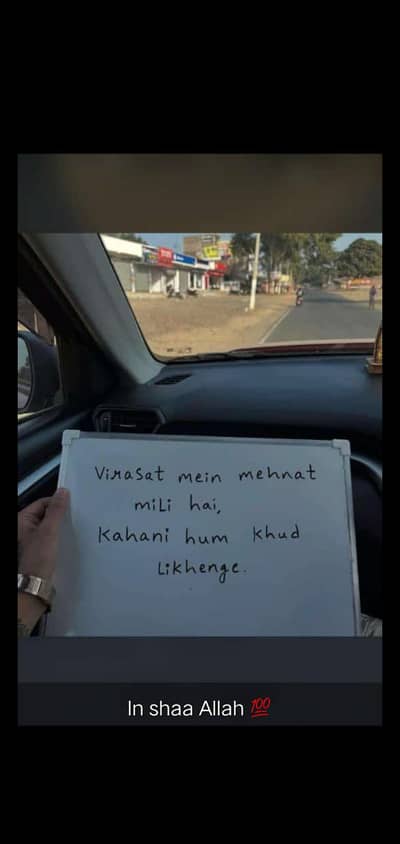 Virasat mein mehnat
mili hai,
Kahani hum khud
Likhenge.
In shaa Allah 💯